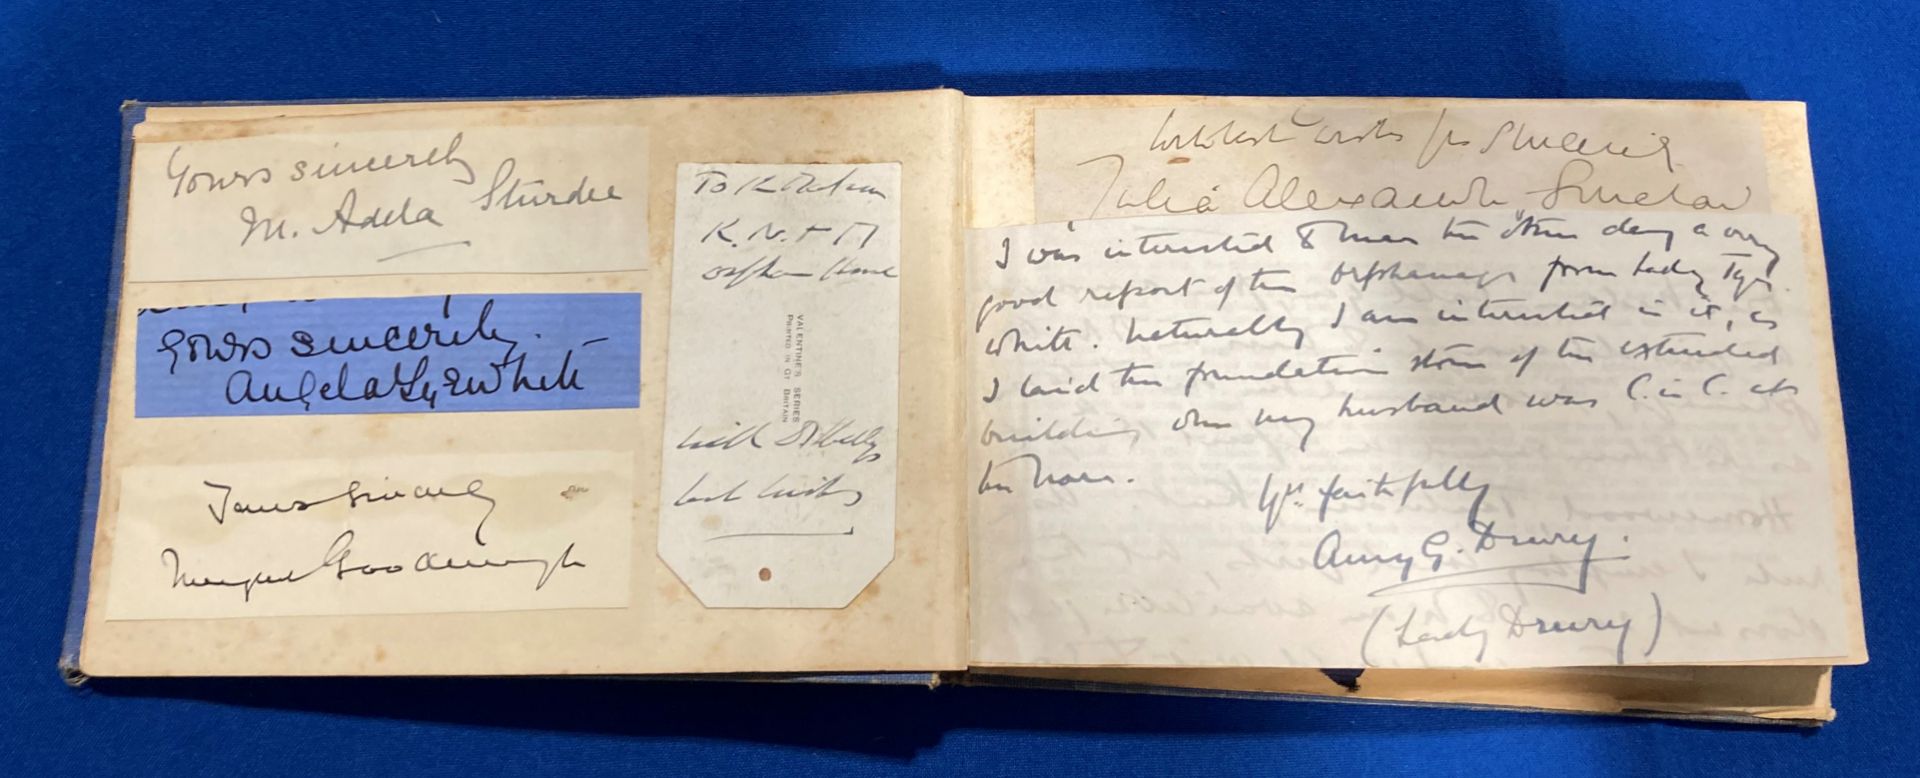 Yours sincerely
M. Adela Sturdee
Yours sincerely.
Angela Tyrwhitt
Yours Sincerely
Margaret Goodenough
To
K. N. & M
orphan Home
VALENTINE'S SERIES
PRINTED IN GT BRITAIN
with
best wishes
With best wishes for
Julia Alexander Sinclair
I was interested to hear the other day a very
good report of the Orphanage from Lady Tyr
whitt. Naturally I am interested in it, as
I laid the foundation stone of the extended
building when my husband was C. in C. at
the Nore.
Yrs faithfully
Amy G. Drury.
(Lady Drury)